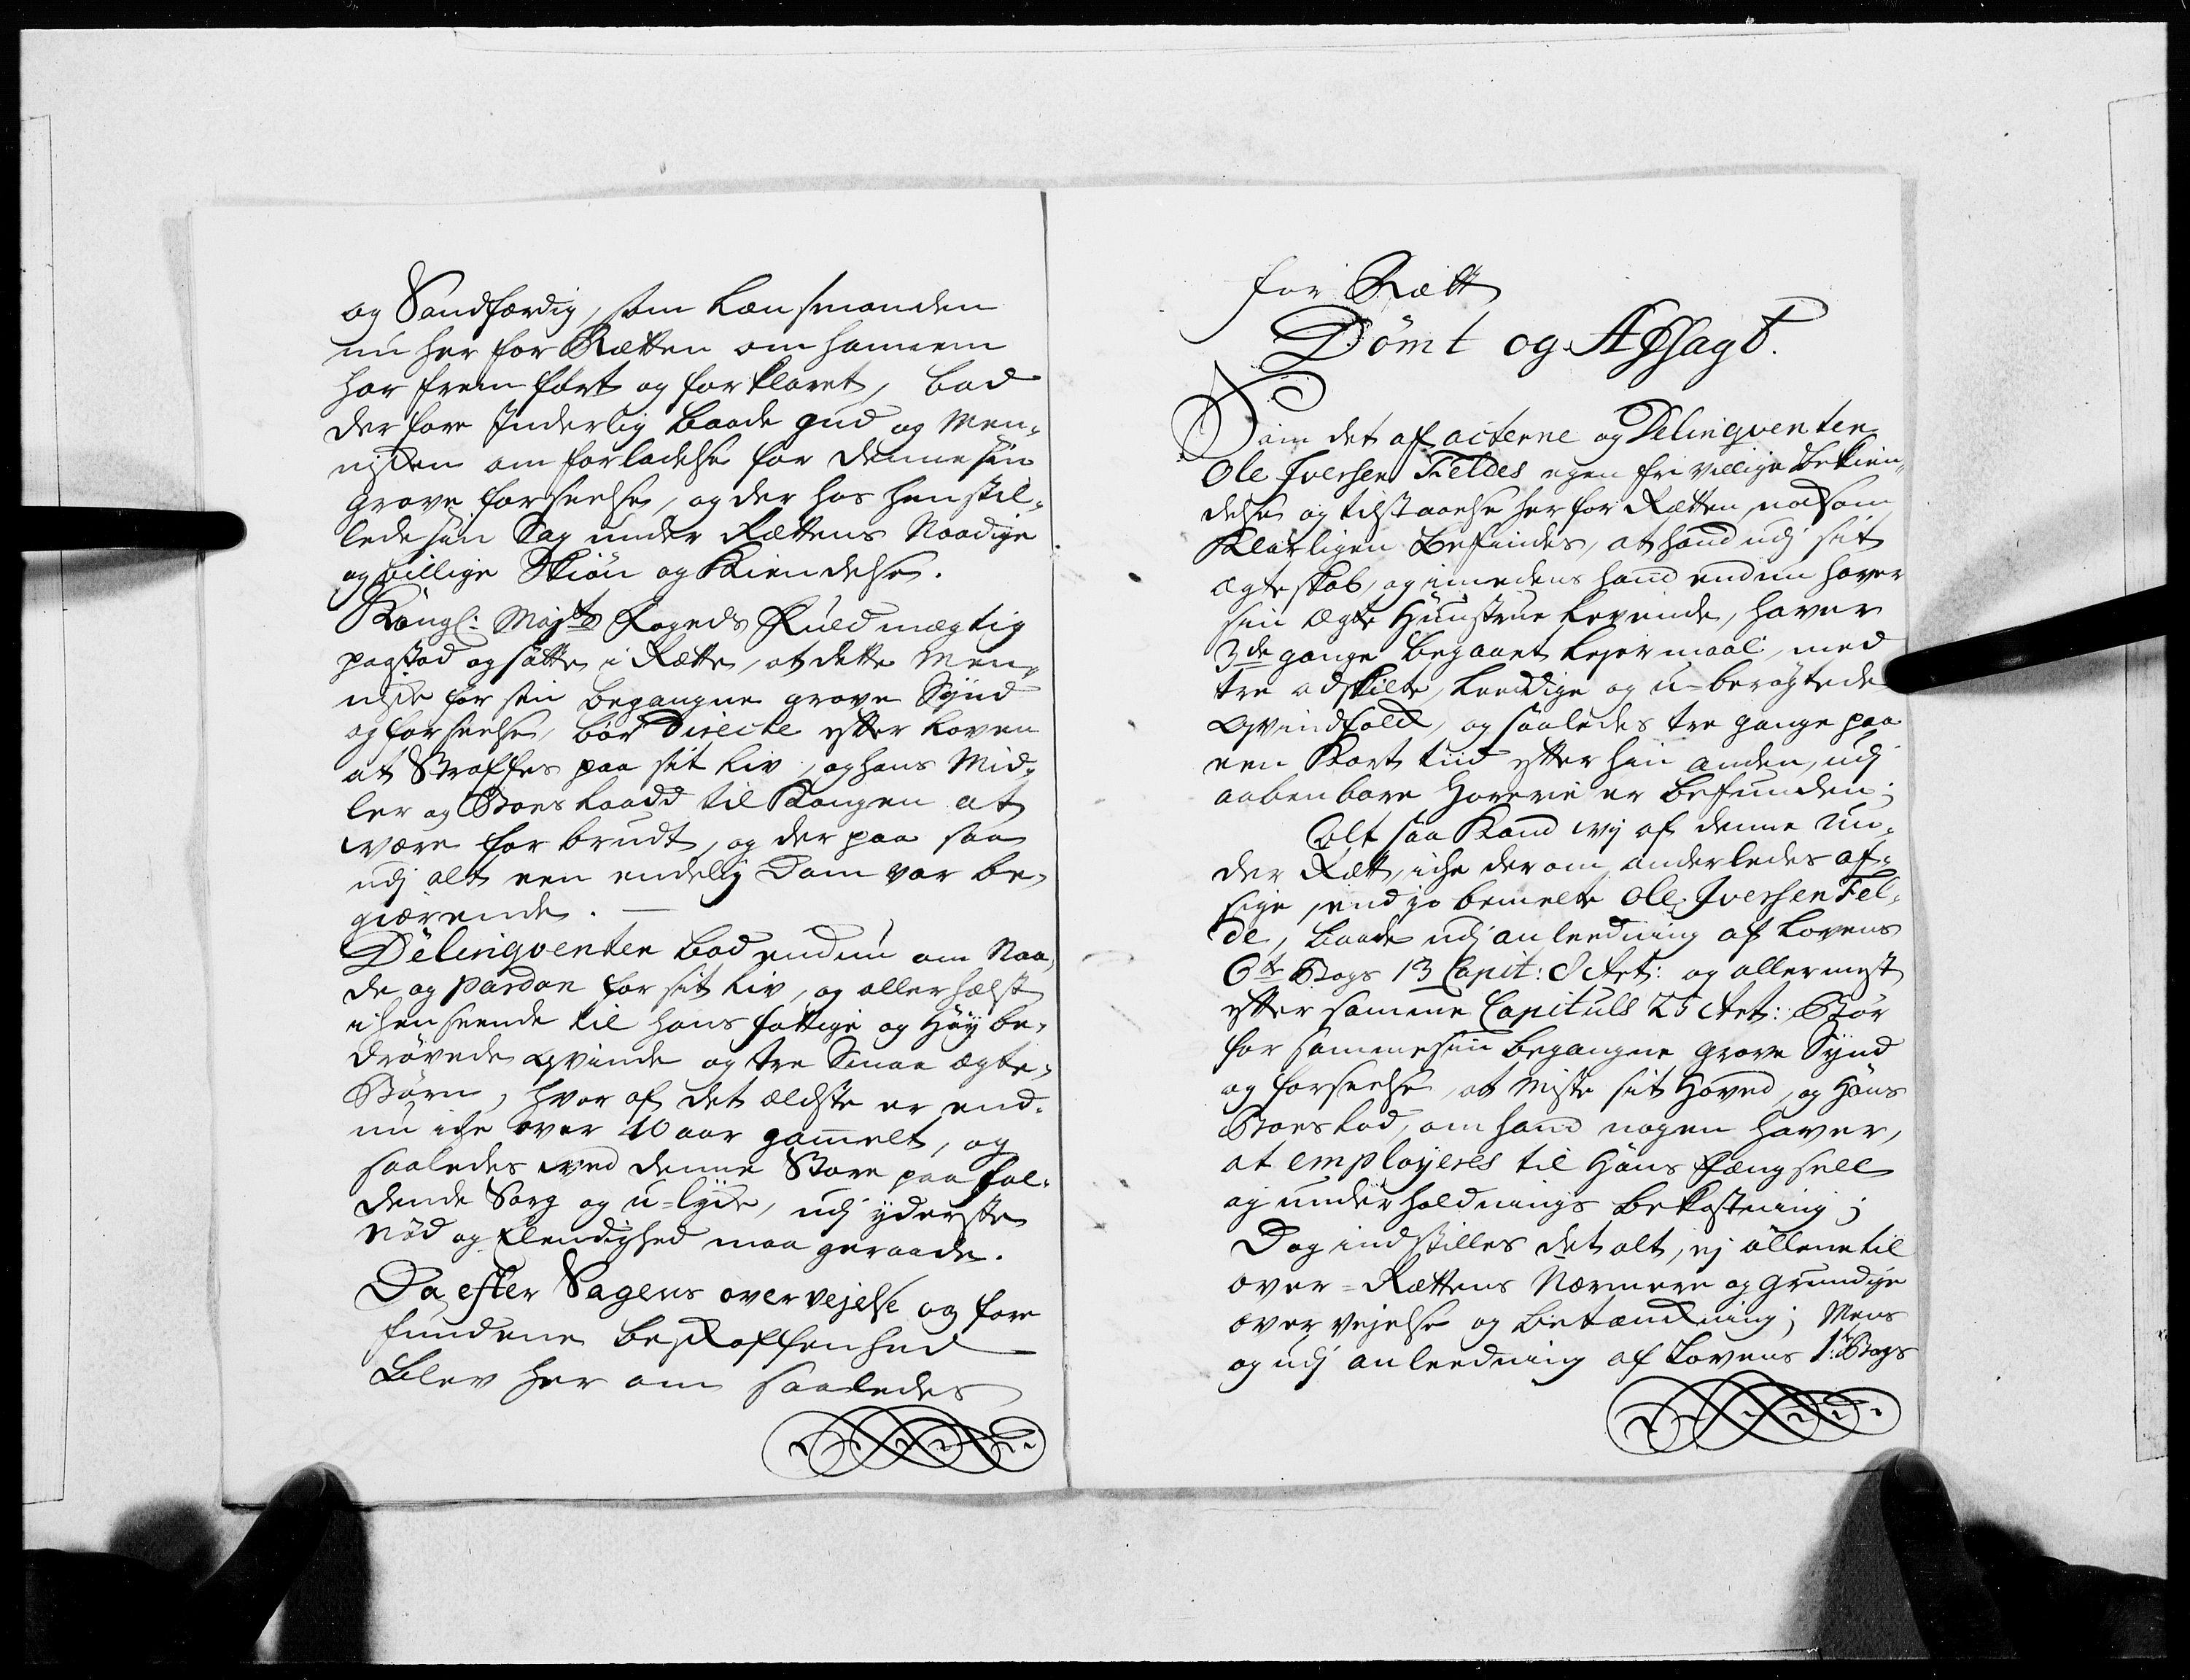 og Sandfærdig, som Lænsmanden
nu her for Rætten om hannem
har frem ført og forklaret, bad
derfore Inderlig baade gud og Men-
nisken om forladelse for denne sin
grove forseelse, og der hos henstil-
lede sin Sag under Rættens Naadige
og billige Skiøn og Kiendelse.
Kongl: Majts Fogeds Fuldmægtig
paastod og sætte i Rætte, at dette Men-
niske for sin begangne grove Synd
og forseelse, bør Directe efter Loven
at Straffes paa sit Liv, og hans Mid-
ler og Boeslaadd til Kongen at
være forbrudt, og der paa saa
udj alt een endelig Dom var be-
giærende.
Delinqventen bad endnu om Naa-
de og pardon for sit Liv, og aller hælst
i henseende til hans fattige og Høy be-
drøvede qvinde og tre Smaa ægte-
Børn, hvor af det ældste er end-
nu iche over 10 aar gammelt, og
saaledes ved denne Store paafal-
dende Sorg og u-lyke, udj yderste
Nød og Elendighed maa geraade.
Da efter Sagens overvejelse og fore
fundene beskaffenhed
Blev her om saaledes
for Rætt
Dømt og Afsagt.
Som det af acterne og Delinqventen
Ole Iversen Feldes egen fri villige bekien-
delse og tilstaaelse her for Rætten, noksom
Klarligen befindes, at hand udj sit
ægteskab, og imedens hand endnu haver
sin ægte Hustrue levende, haver
3de gange begaaet Lejermaal, med
tre adskilte, Leedige og u-berøgtede
qvindfolck, og saaledes tre gange paa
een Kort tiid efter hin anden, udj
aabenbare Horerie er befunden;
Alt saa Kand vij af denne Un-
der Rætt, iche derom anderledes af-
sige, end jo bemelte Ole Iversen Fel-
de, baade udj anleedning af Lovens
6te Bogs 13 Capit: 8 Art: og allermest
efter samme Capituls 25 Art: Bør
for samme sin begangne grove Synd
og forseelse, at Miste sit Hoved, og Hans
Boeslod, om hand nogen haver,
at employeres til Hans Fængsell
og underholdnings bekostning;
Dog indstilles det alt, ej allene til
over-Rættens Nærmere og grundige
overvejelse og betænckning; Mens
og udj anleedning af Lovens 1te Bogs